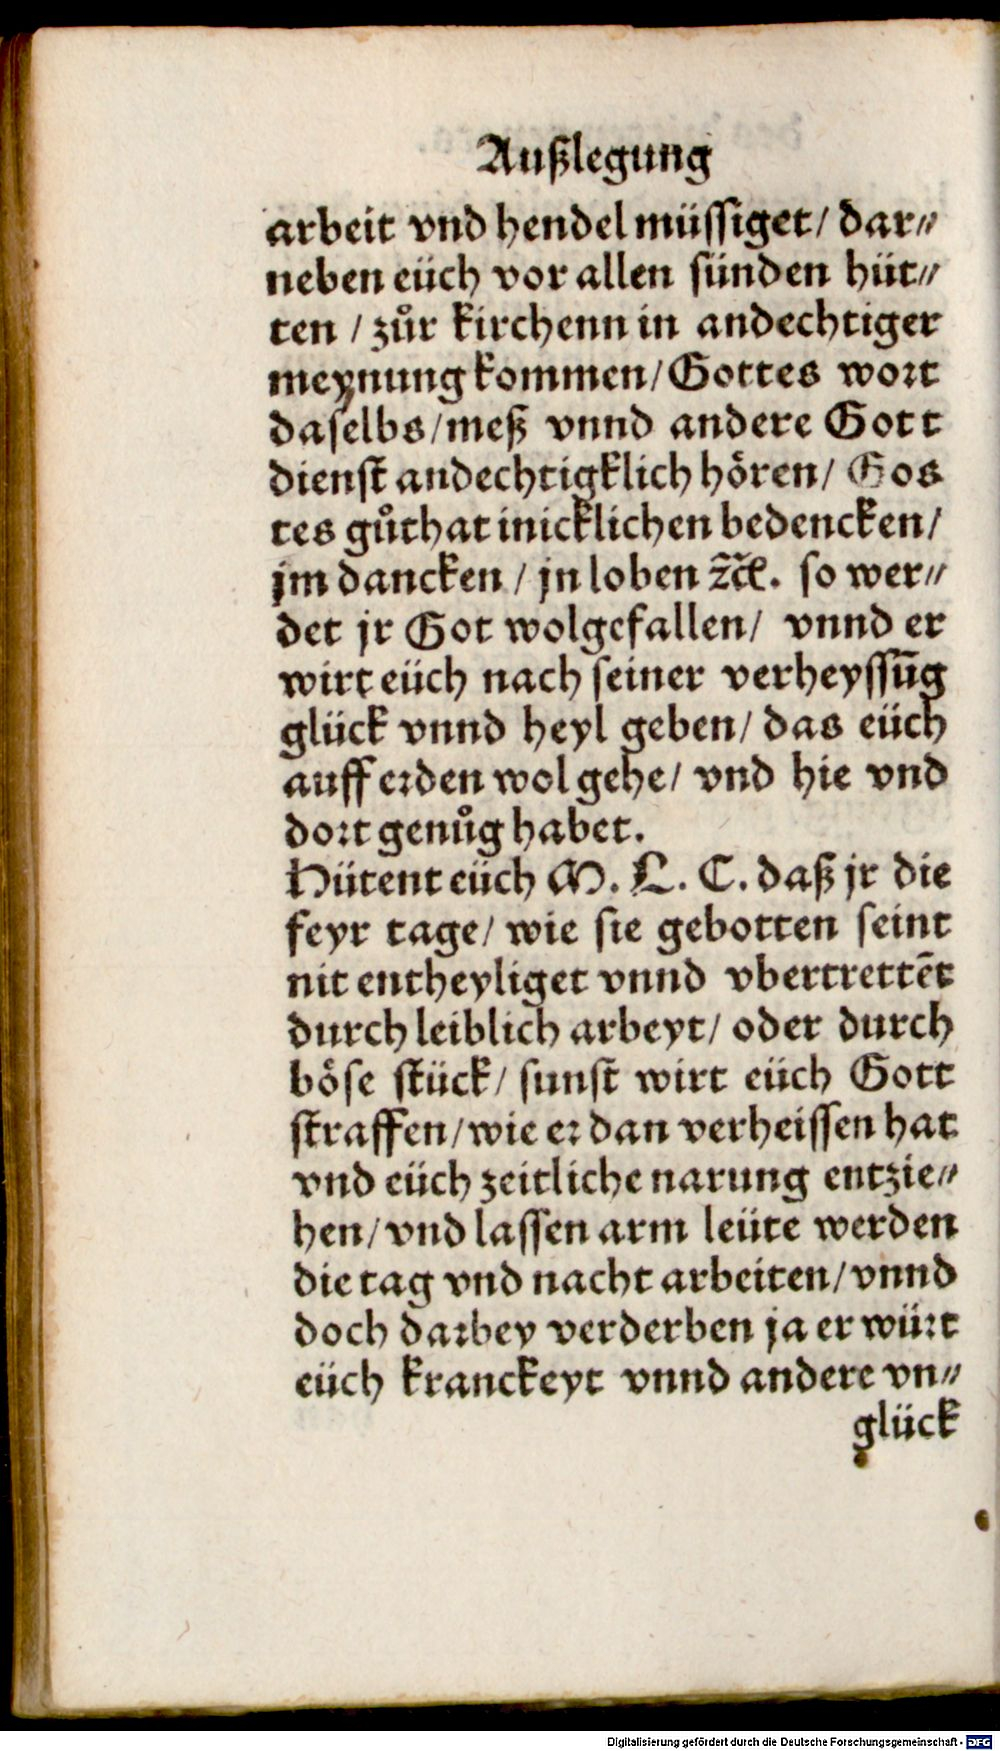 Außlegung
arbeit vnd hendel müssiget/ dar⸗
neben eüch vor allen sünden hüt⸗
ten / zůr kirchenn in andechtiger
meynung kommen/ Gottes wort
daselbs/ meß vnnd andere Gott
dienst andechtigklich hören/ Gos
tes gůthat inicklichen bedencken/
jm dancken / jn loben ꝛc̃. so wer⸗
det jr Got wolgefallen/ vnnd er
wirt eüch nach seiner verheyssūg
glück vnnd heyl geben/ das eüch
auff erden wol gehe/ vnd hie vnd
dort genůg habet.
Hütent eüch M. L. C. daß jr die
feyr tage/ wie sie gebotten seint
nit entheyliget vnnd vbertrettēt
durch leiblich arbeyt/ oder durch
böse stück/ sunst wirt eüch Gott
straffen/ wie er dan verheissen hat
vnd eüch zeitliche narung entzie⸗
hen/ vnd lassen arm leüte werden
die tag vnd nacht arbeiten/ vnnd
doch darbey verderben ja er würt
eüch kranckeyt vnnd andere vn⸗
glück
Digitalisierung gefördert durch die Deutsche Forschungsgemeinschaft - DFG